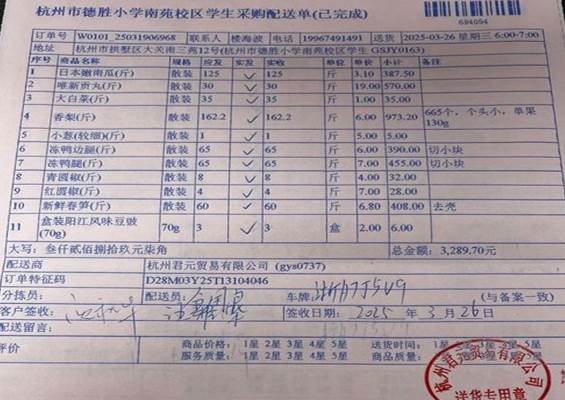 杭州市德胜小学南苑校区学生采购配送单(已完成)
694094
订单号 W0101_25031906968 联系人 楼海波 电话 19967491491 送货时间 2025-03-26 星期三 6:00-7:00
地址 杭州市拱墅区大关南三苑12号(杭州市德胜小学南苑校区学生 GSJY0163)
序号 商品名称 规格 应发 实发 实收 单位 单价 小计 备注
1 日本嫩南瓜(斤) 散装 125 125 斤 3.10 387.50
2 唯新贡丸(斤) 散装 30 30 斤 19.00 570.00
3 大白菜(斤) 散装 35 35 斤 1.00 35.00
4 香梨(斤) 散装 162.2 162.2 斤 6.00 973.20 665个，个头小，单果130g
5 小葱(较细)(斤) 散装 1 1 斤 5.00 5.00
6 冻鸭边腿(斤) 散装 65 65 斤 6.00 390.00 切小块
7 冻鸭腿(斤) 散装 65 65 斤 7.00 455.00 切小块
8 青圆椒(斤) 散装 8 8 斤 4.00 32.00
9 红圆椒(斤) 散装 4 4 斤 7.00 28.00
10 新鲜春笋(斤) 散装 60 60 斤 6.80 408.00 去壳
11 盒装阳江风味豆豉(70g) 70g 3 3 盒 2.00 6.00
大写：叁仟贰佰捌拾玖元柒角 总金额：3,289.70元
配送商 杭州君元贸易有限公司 (gys0737)
订单特征码 D28M03Y25T13104046
分拣员： 配送员： 车牌： (与备案一致)
客户签收： 签收日期：2025 年 3 月 26 日
配送留言：
评价 商品价格：1星 2星 3星 4星 5星 送货时间：1星 2星 3星 4星 5星
商品质量：1星 2星 3星 4星 5星 服务质量：1星 2星 3星 4星 5星
杭州君元贸易有限公司
送货专用章